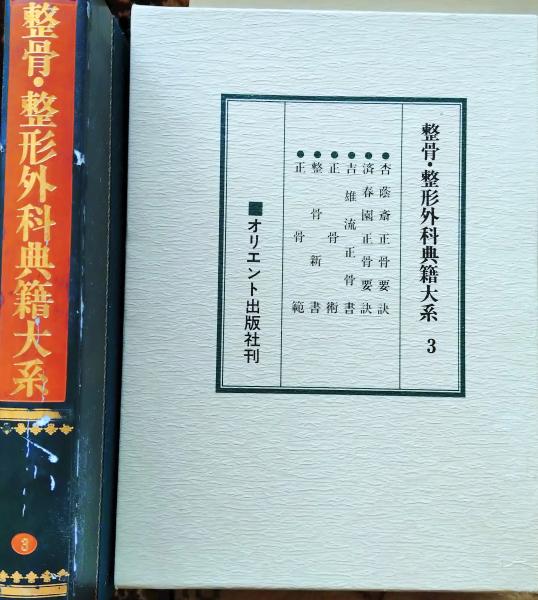 整骨・整形外科典籍大系
3
整骨・整形外科典籍大系 3
●杏蔭斎正骨要訣
●済春園正骨要訣
●吉雄流正骨書
●正骨術
●整骨新書
●正骨範
オリエント出版社刊